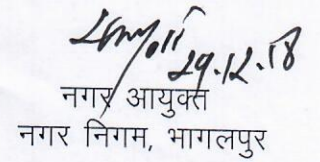 29.12.18
नगर आयुक्त
नगर निगम, भागलपुर